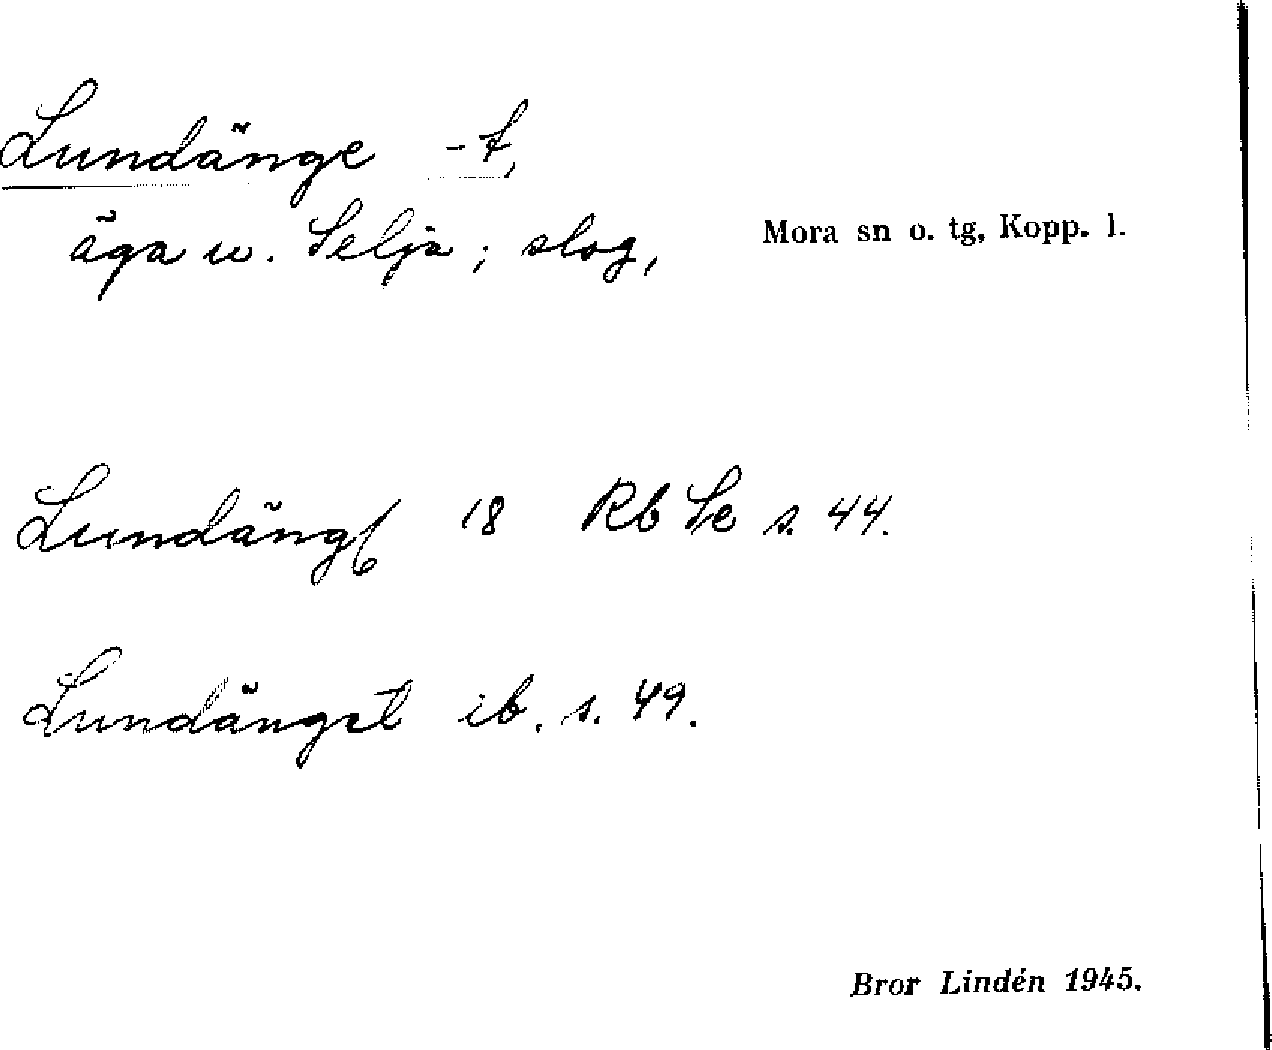 Lundänge -t,
äga u. Selja ; slog,
Mora sn o. tg, Kopp. l.
18 Rb Se s. 44.
Lundänget ib. s. 49.
Bror Lindén 1945.